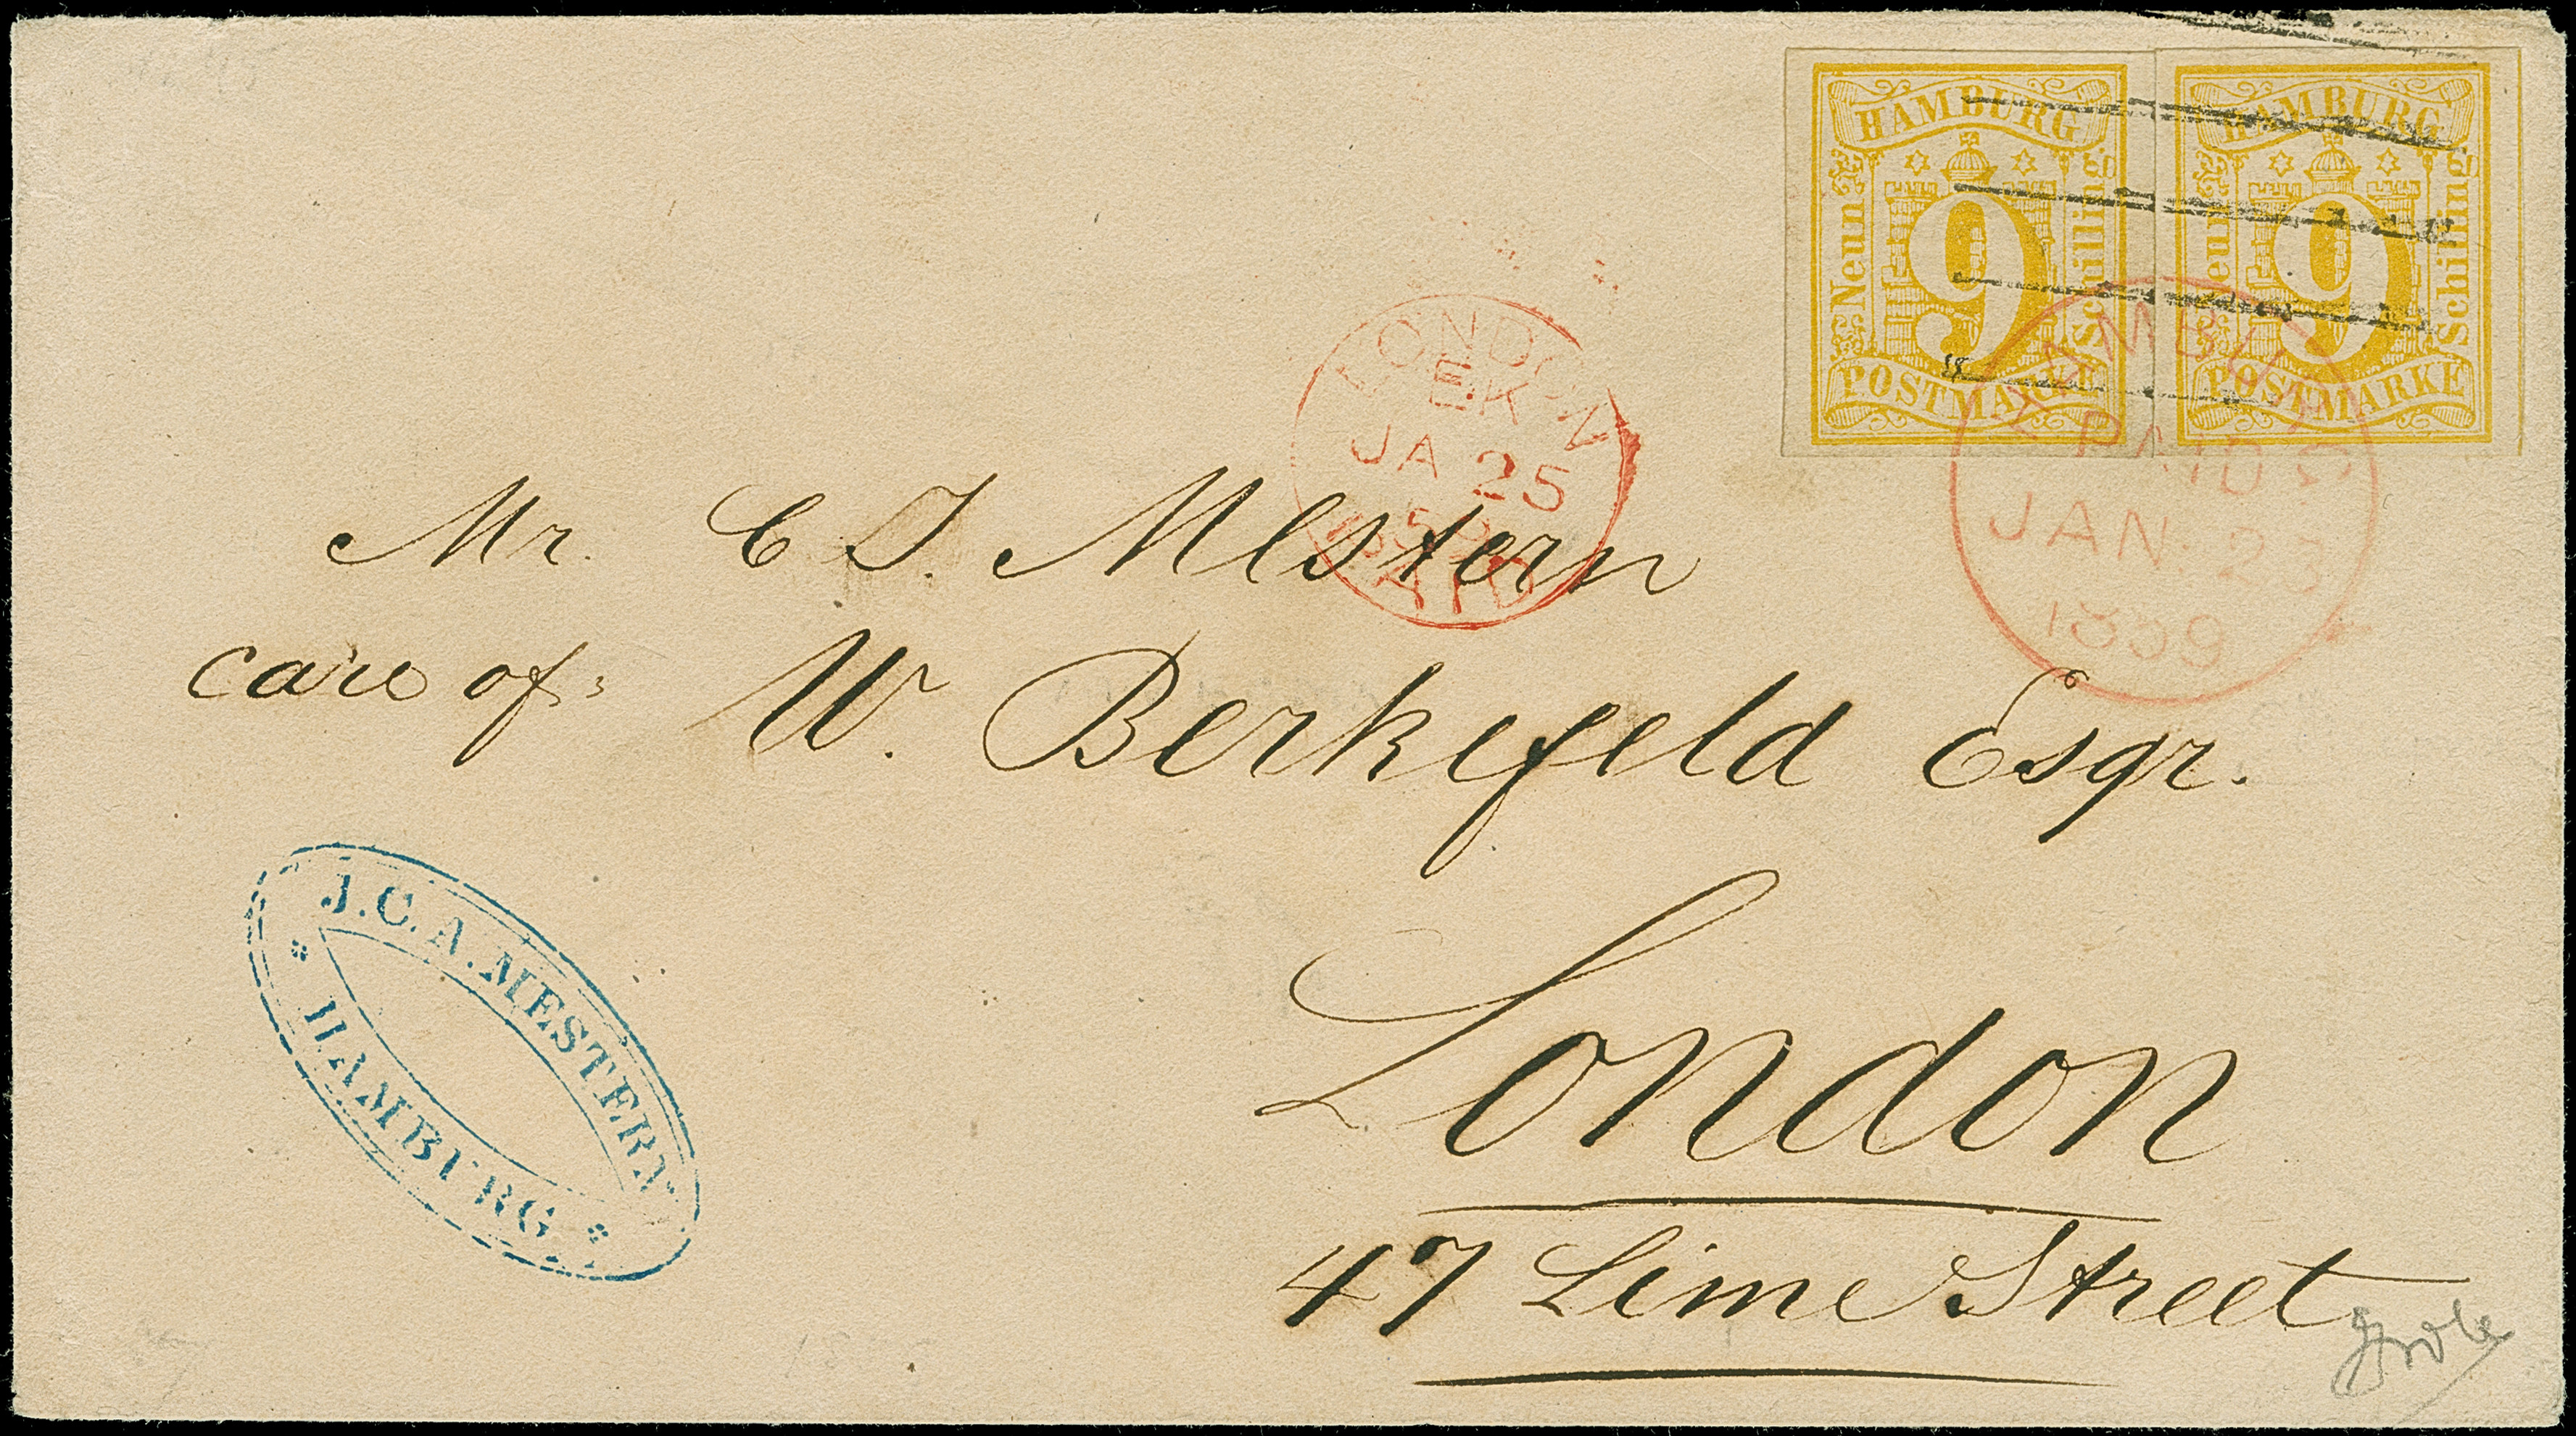 HAMBURG
Neun
9
Schilling
POSTMARKE
HAMBURG
Neun
9
Schilling
POSTMARKE
LONDON
EK
JA 25
59
PAID
HAMBURG
PAID
JAN. 23
1859
Mr. C J. Mestern
care of W. Berkefeld Esqr.
J. C. A. MESTERN
HAMBURG.
London
47 Lime Street